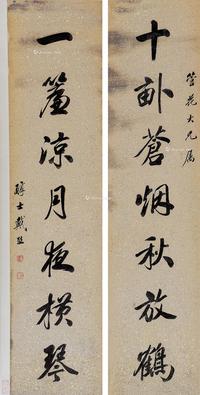 笙花大兄属
十亩蒼烟秋放鶴
一簾涼月夜橫琴
醇士戴熙